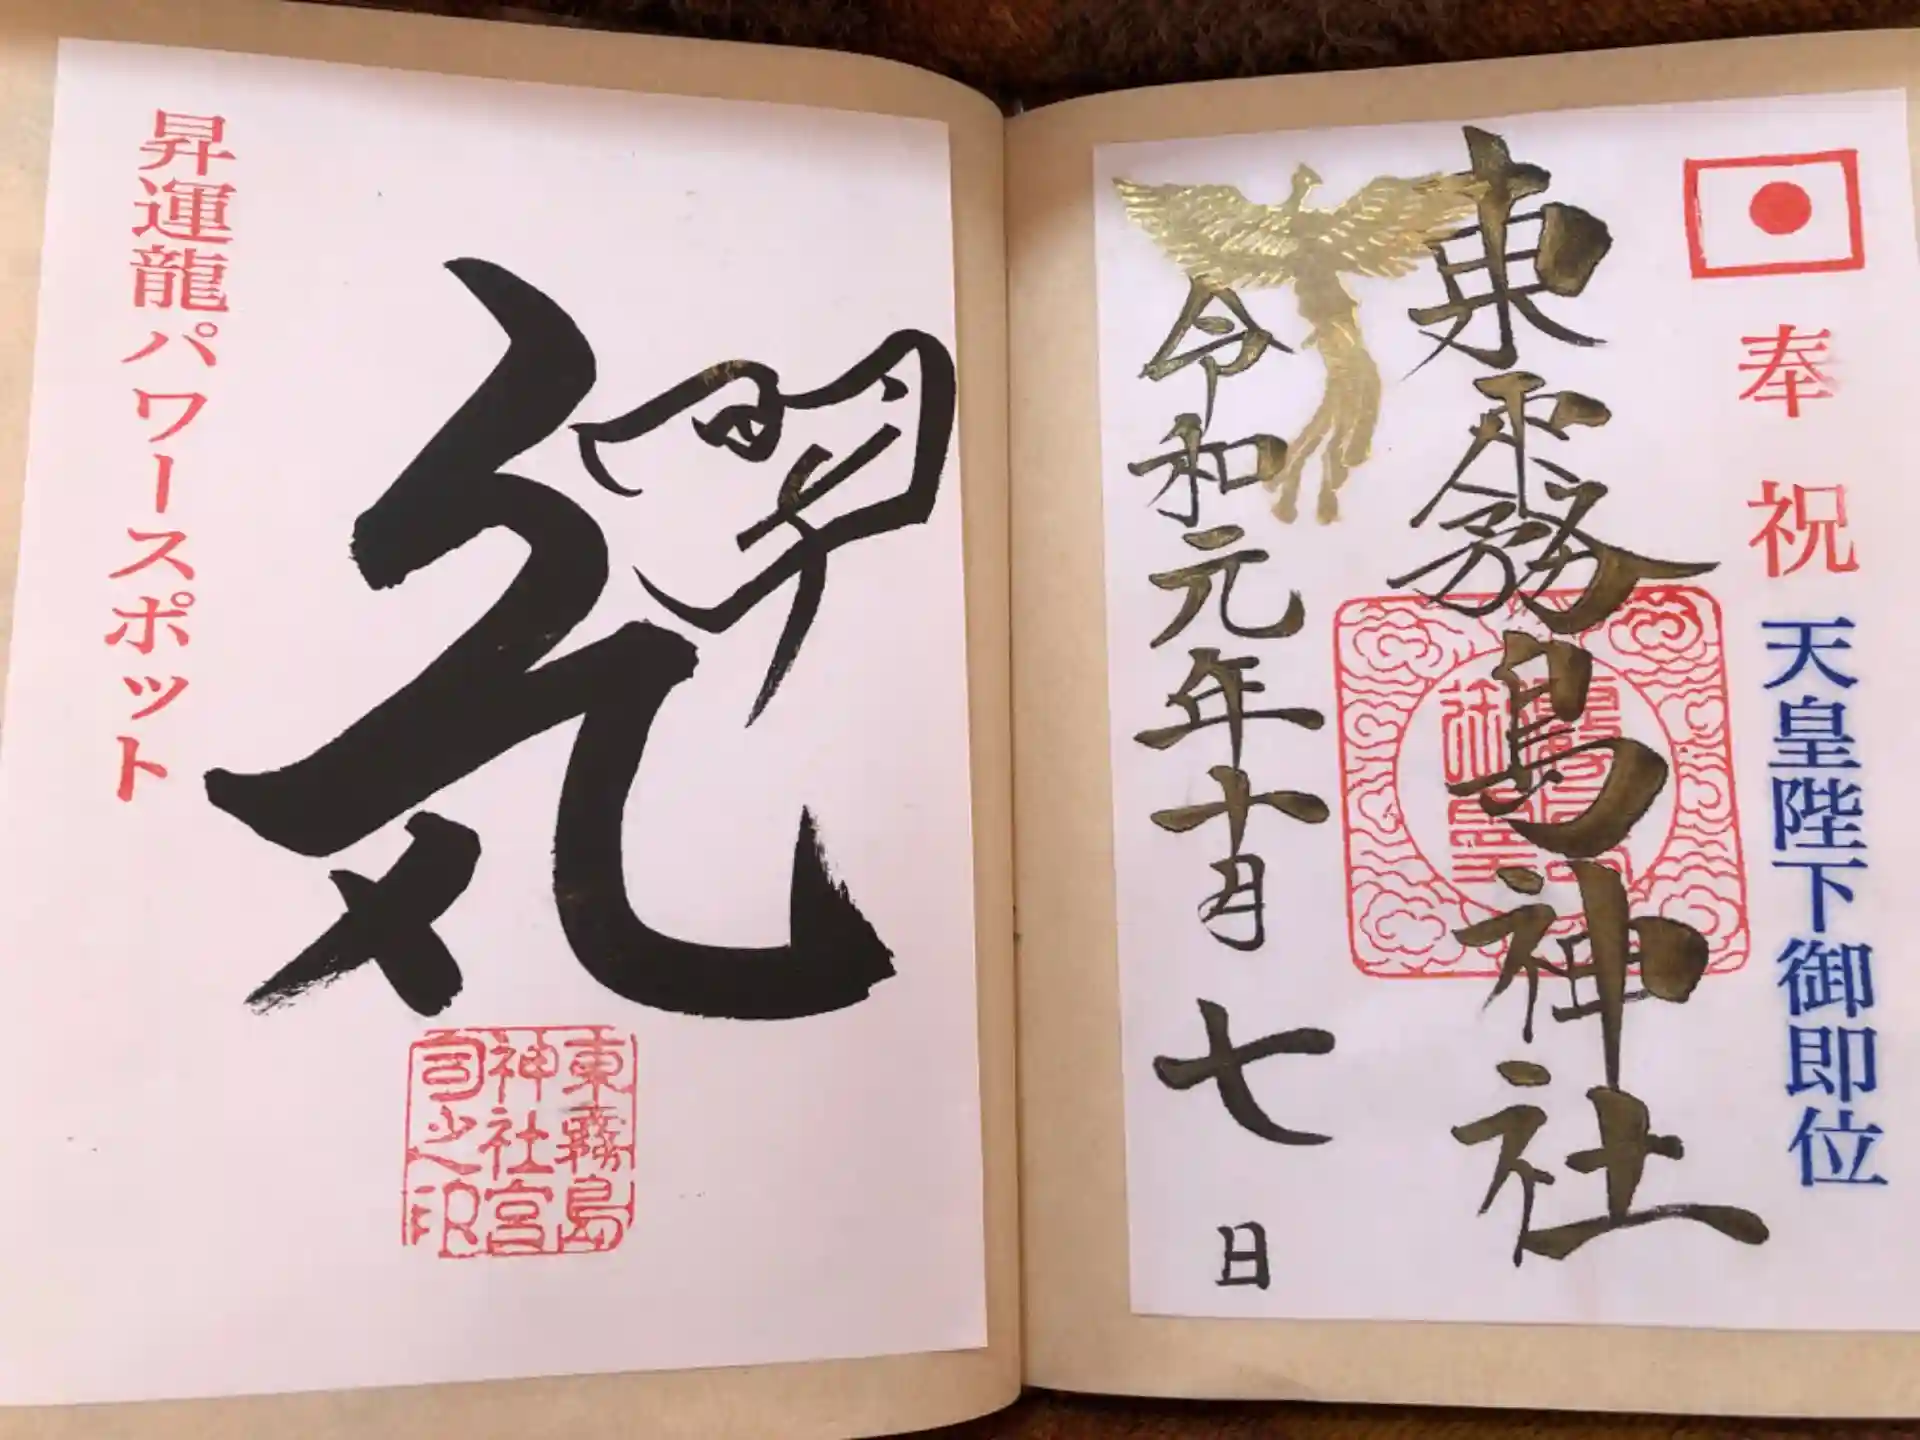 奉祝 天皇陛下御即位
東霧島神社
令和元年十月七日
昇
気
昇運龍パワースポット
東霧島
神社宮
司之印